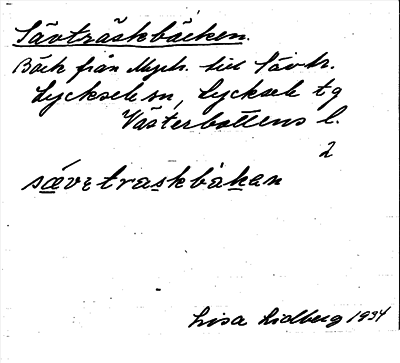 Sävträskbäcken.
Bäck från Myrtr. till Sävtr.
Lycksele sn, Lycksele tg
Västerbottens l.
2
sævɛtraskbäkan
Lisa Lidberg 1934